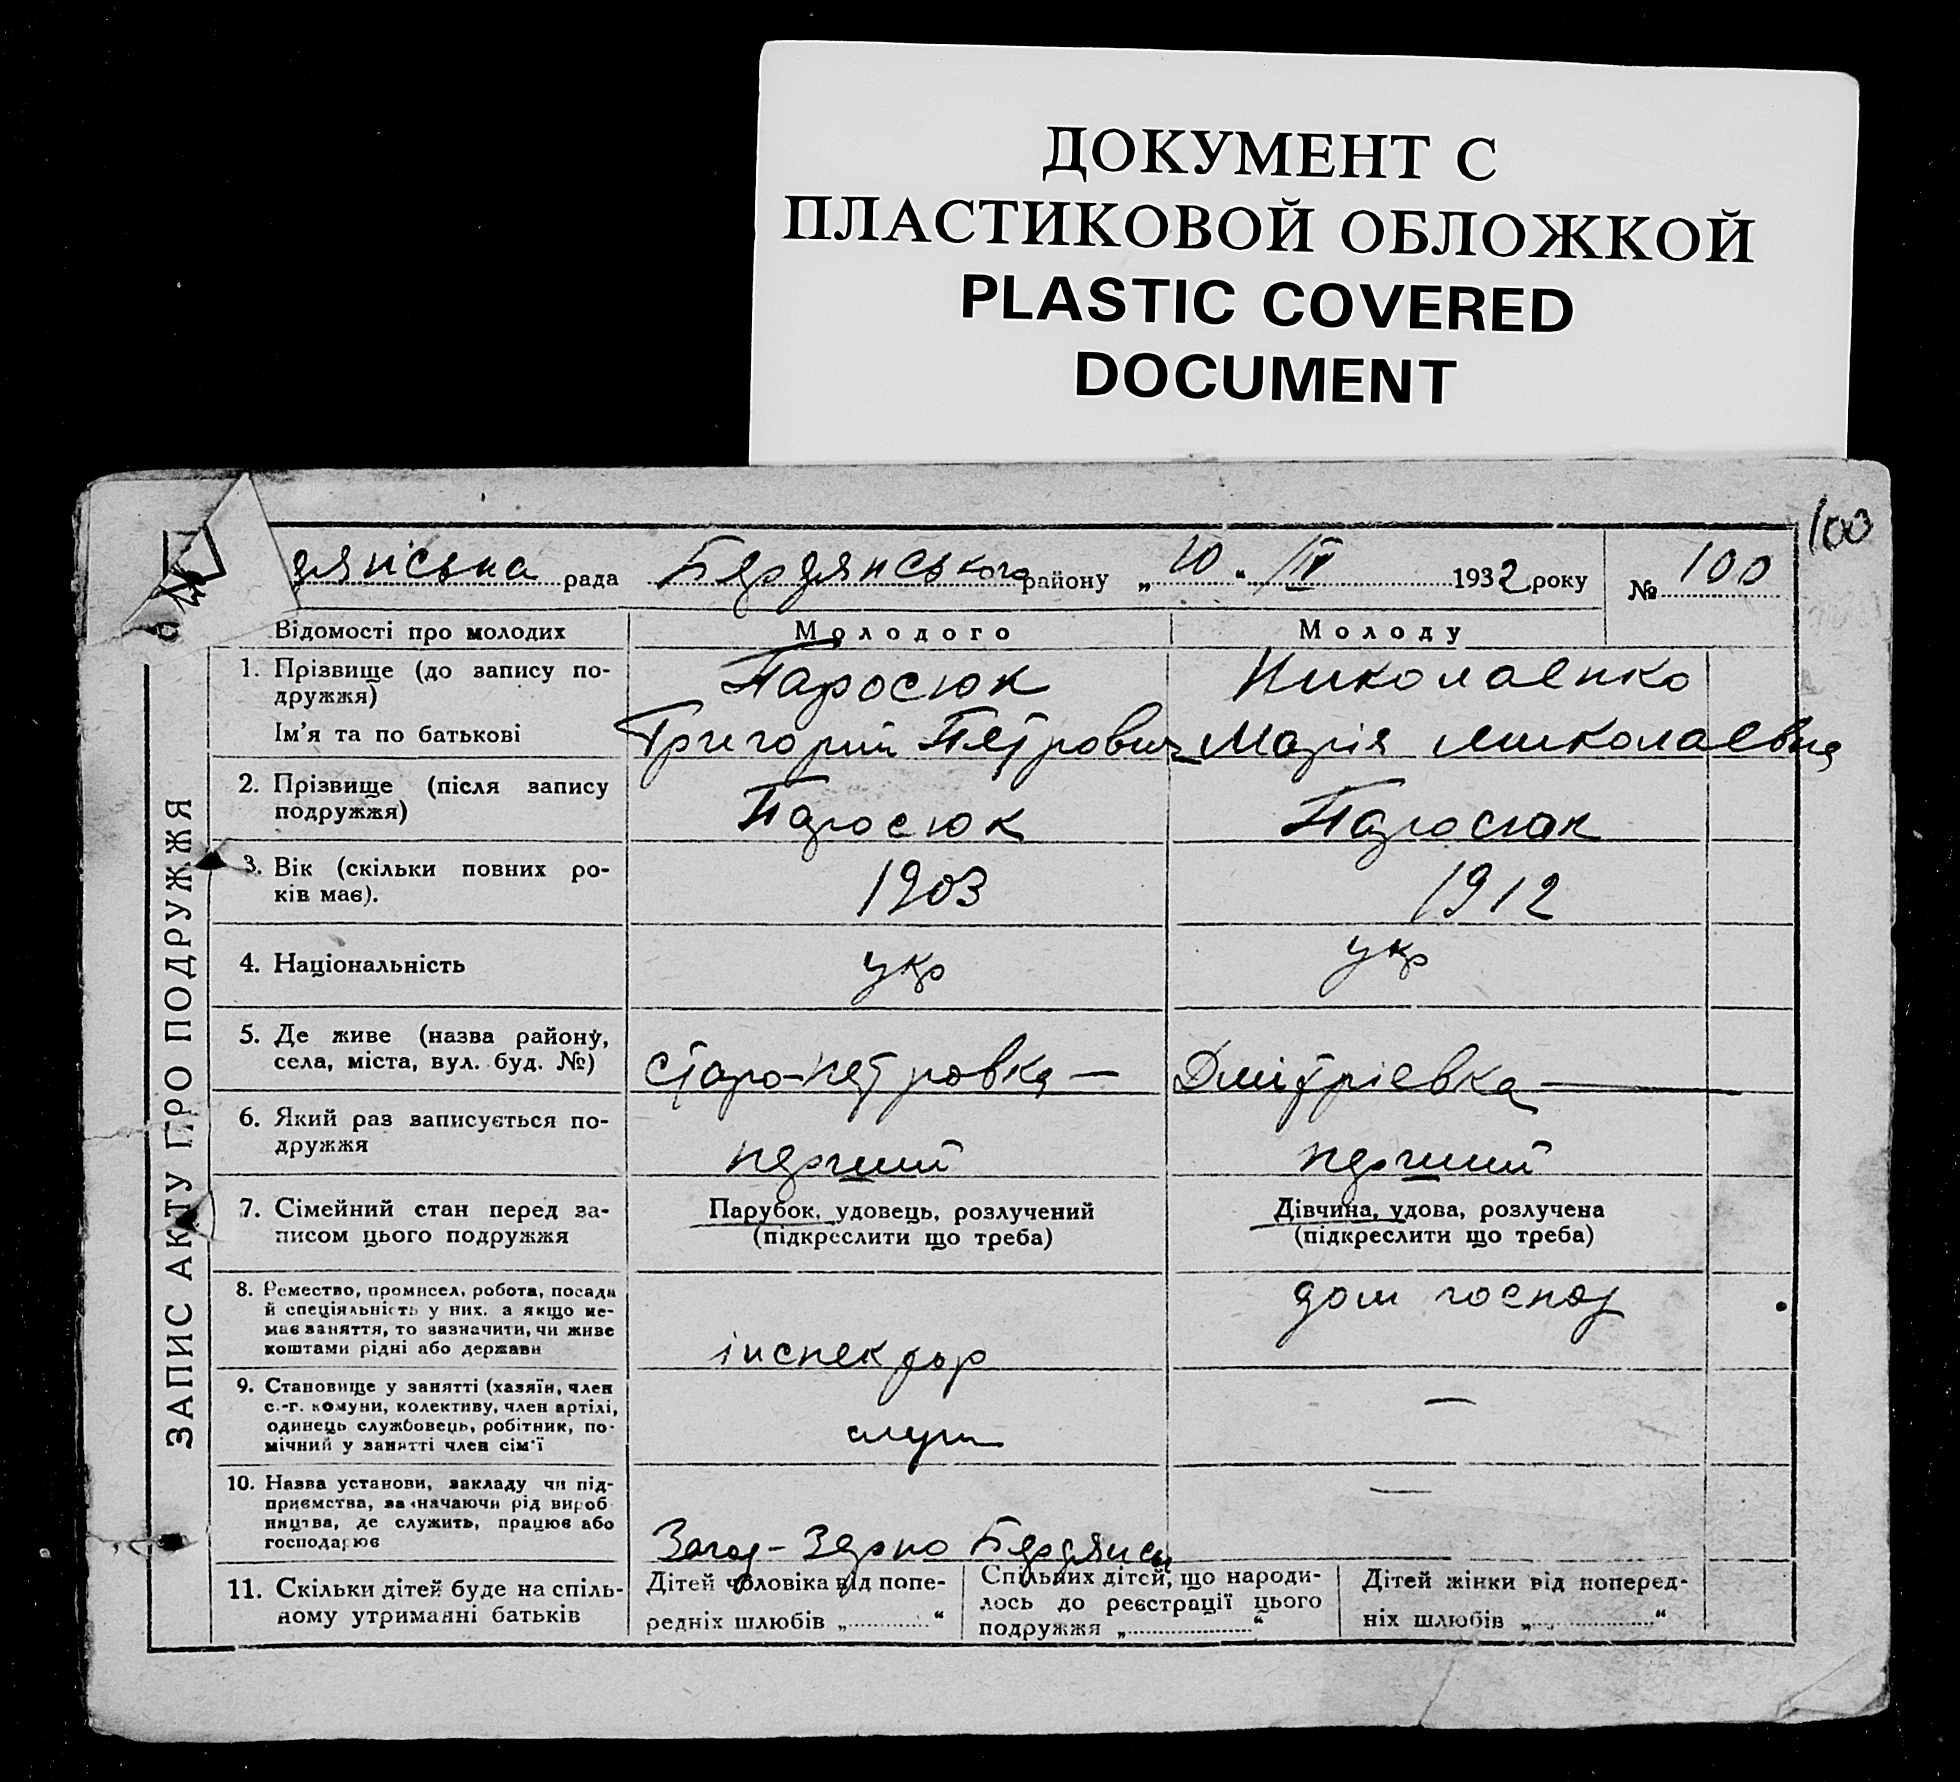 ДОКУМЕНТ С
ПЛАСТИКОВОЙ ОБЛОЖКОЙ
PLASTIC COVERED
DOCUMENT
100
дянська рада Бердянського району „10“ IV 1932 року № 100
ЗАПИС АКТУ ПРО ПОДРУЖЖЯ
Відомості про молодих Молодого Молоду
1. Прізвище (до запису по-
дружжя) Паросюк Николаенко
Ім'я та по батькові Григорий Петрович Марія Миколаевна
2. Прізвище (після запису
подружжя) Паросюк Паросюк
3. Вік (скільки повних ро-
ків має). 1903 1912
4. Національність укр укр
5. Де живе (назва району,
села, міста, вул. буд. №) Старо-Петровка — Дмітріевка —
6. Який раз записується по-
дружжя перший перший
7. Сімейний стан перед за-
писом цього подружжя
Парубок, удовець, розлучений
(підкреслити що треба)
Дівчина, удова, розлучена
(підкреслити що треба)
8. Ремество, промисел, робота, посада
й спеціяльність у них, а якщо не-
має заняття, то зазначити, чи живе
коштами рідні або держави
інспектор
дом господ
9. Становище у занятті (хазяїн, член
с.-г. комуни, колективу, член артілі,
одинець службовець, робітник, по-
мічний у занятті член сім'ї
—
10. Назва установи, закладу чи під-
приємства, зазначаючи рід вироб
ництва, де служить, працює або
господарює
Зерно
—
11. Скільки дітей буде на спіль-
ному утриманні батьків
Дітей чоловіка від попе-
редніх шлюбів „ “
Спільних дітей, що народи-
лось до реєстрації цього
подружжя „ “
Дітей жінки від поперед-
ніх шлюбів „ “